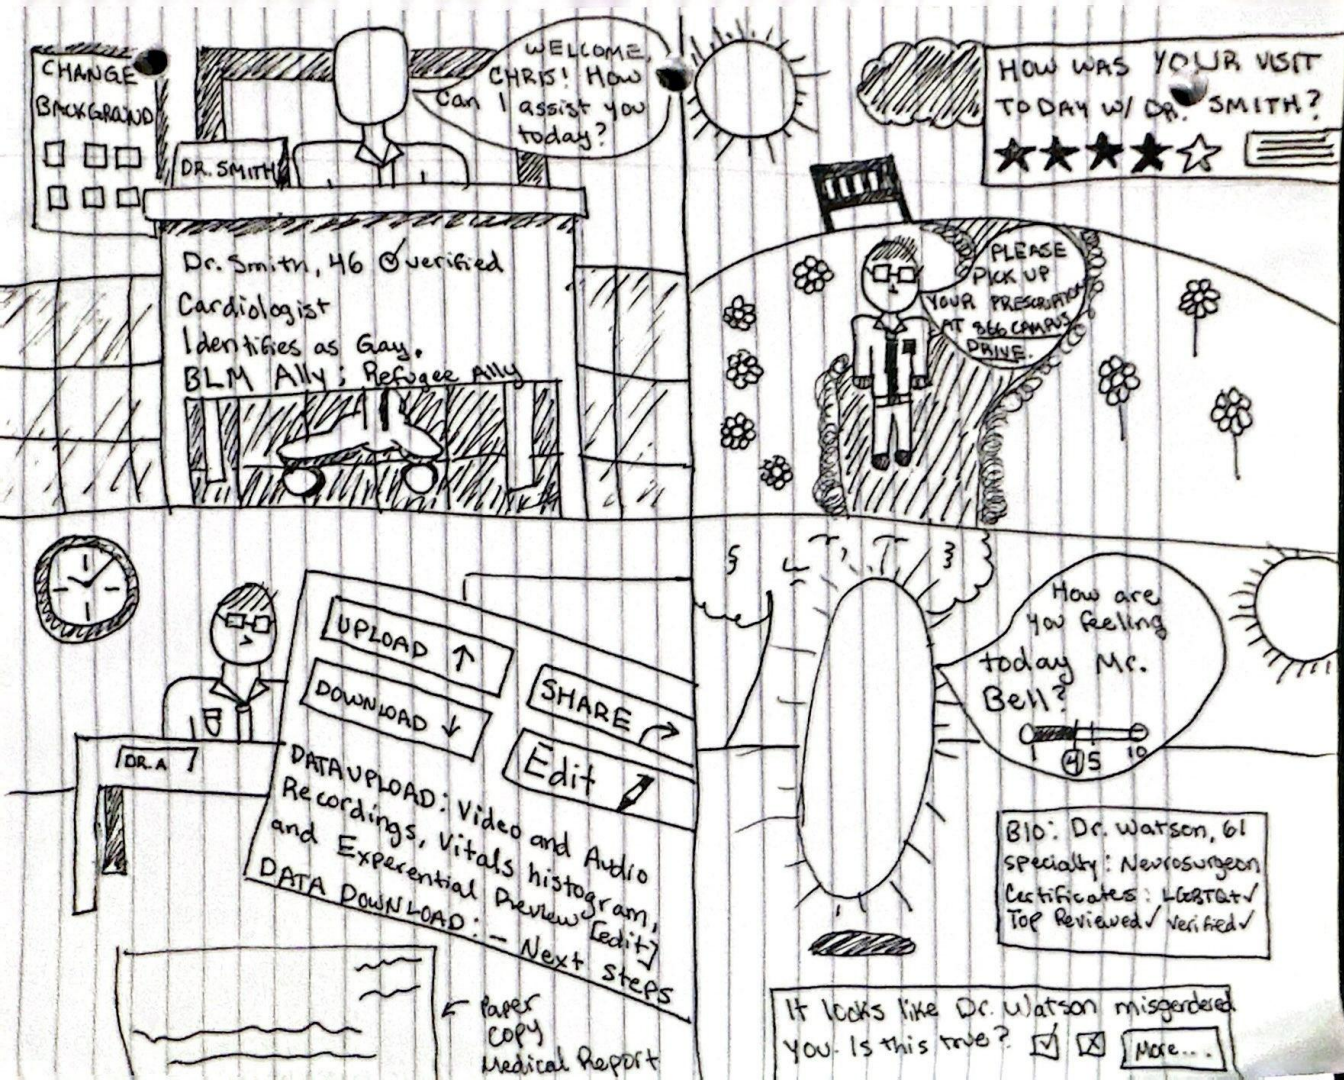 CHANGE
BACKGROUND
DR. SMITH
WELLCOME,
CHRIS! How
Can I assist you
today?
Dr. Smith, 46 verified
Cardiologist
Identifies as Gay.
BLM Ally; Refugee Ally
HOW WAS YOUR VISIT
TODAY W/ DR. SMITH?
PLEASE
PICK UP
YOUR PRESCRIPTION
AT 866 CAMPUS
DRIVE.
DR. A
UPLOAD ↑
DOWNLOAD ↓
SHARE
Edit
DATA UPLOAD: Video and Audio
Recordings, Vitals histogram,
and Experential Preview [edit]
DATA DOWNLOAD: - Next Steps
← Paper
Copy
Medical Report
How are
you feeling
today Mr.
Bell?
1 4 5 10
BIO: Dr. Watson, 61
specialty: Neurosurgeon
Certificates: LGBTQ+✓
Top Reviewed✓ verified✓
It looks like Dr. Watson misgerdered
you. Is this true? ☑ ☒ More...